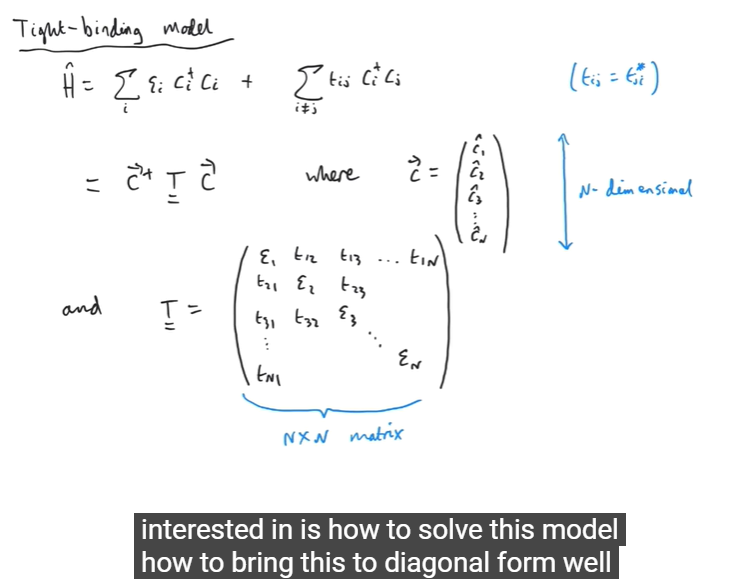 Tight-binding model
Ĥ = Σ_i ε_i c_i† c_i + Σ_{i≠j} t_ij c_i† c_j (t_ij = t_ji*)
= c⃗† T c⃗ where c⃗ = ( ĉ_1 ĉ_2 ĉ_3 ⋮ ĉ_N ) N-dimensional
and T =
ε_1 t_12 t_13 ... t_1N
t_21 ε_2 t_23
t_31 t_32 ε_3
⋮ ⋱
ε_N
t_N1
N×N matrix
interested in is how to solve this model
how to bring this to diagonal form well